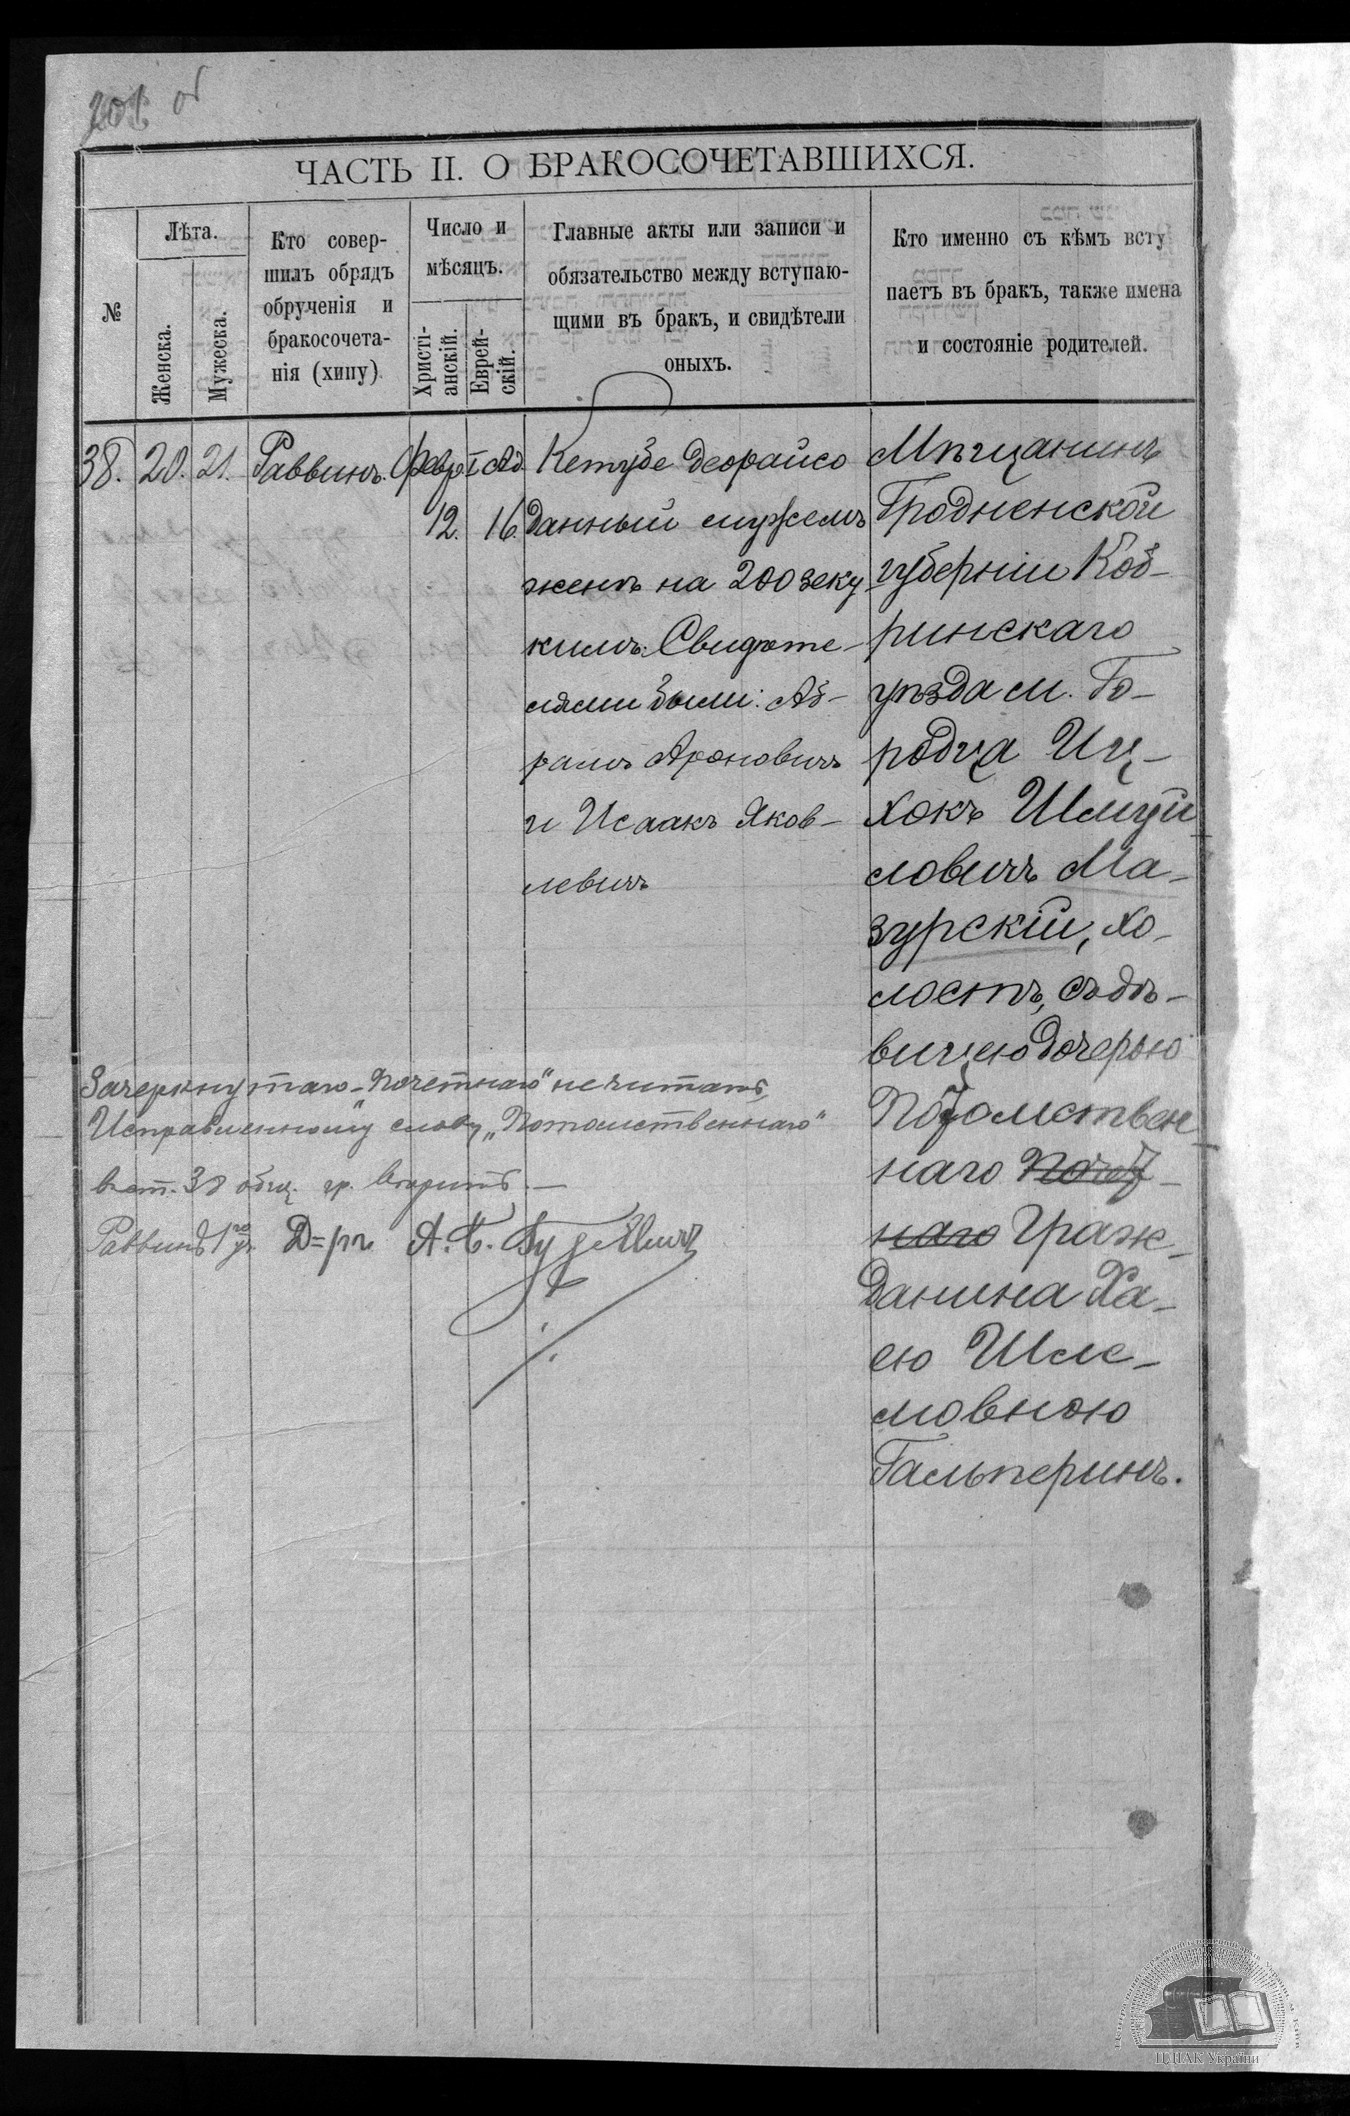 201 об
ЧАСТЬ II. О БРАКОСОЧЕТАВШИХСЯ.
№
Лѣта.
Женска.
Мужеска.
Кто совер-
шилъ обрядъ
обрученія и
бракосочета-
нія (хипу)
Число и
мѣсяцъ.
Христі-
анскій.
Еврей-
скій.
Главные акты или записи и
обязательство между вступаю-
щими въ бракъ, и свидѣтели
оныхъ.
Кто именно съ кѣмъ всту
паетъ въ бракъ, также имена
и состояніе родителей.
38. 20. 21. Раввинъ. Февр I Ад.
12. 16.
Кетубе Деорайсо
данный мужемъ
женѣ на 200 зеку
кимъ. Свидѣте-
лями были: Аб-
рамъ Ароновичъ
и Исаакъ Яков-
левичъ
Мѣщанинъ
Гродненской
губерніи Коб-
ринскаго
уѣзда м. Го-
родца Иц-
хокъ Шмуй
ловичъ Ма-
зурскій, хо-
лостъ, съ дѣ-
вицею дочерью
Потомствен
наго почет-
наго Граж-
данина Ха-
ею Шле-
мовною
Гальперинъ.
Зачеркнутаго „Почетнаго" не читать,
Исправленному слову „Потомственнаго"
в ст. 38 общ. гр. вѣрить. —
Раввинъ Д-ръ А. Б.
ЦДІАК України